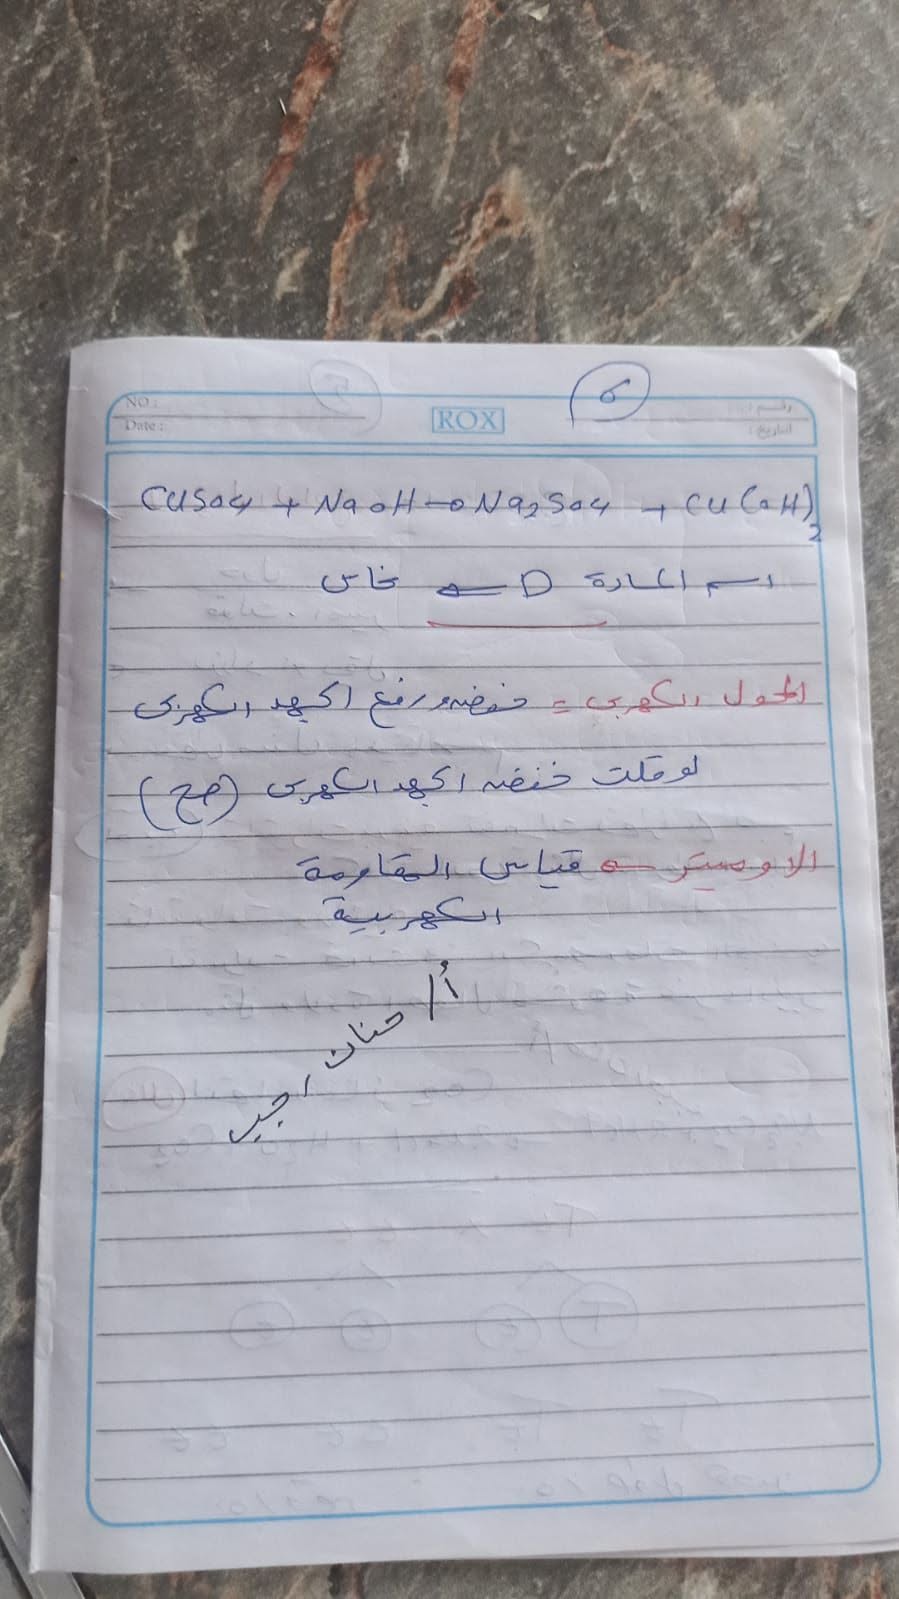 NO:
Date:
ROX
رقم:
التاريخ:
6
CuSo4 + NaoH → Na2So4 + Cu(oH)2
اسم المادة D ← نحاس
المحول الكهربى = خفض ورفع الجهد الكهربى
لو قلت خفض الجهد الكهربى (صح)
الاوميتر ← قياس المقاومة
الكهربية
أ/ حنان